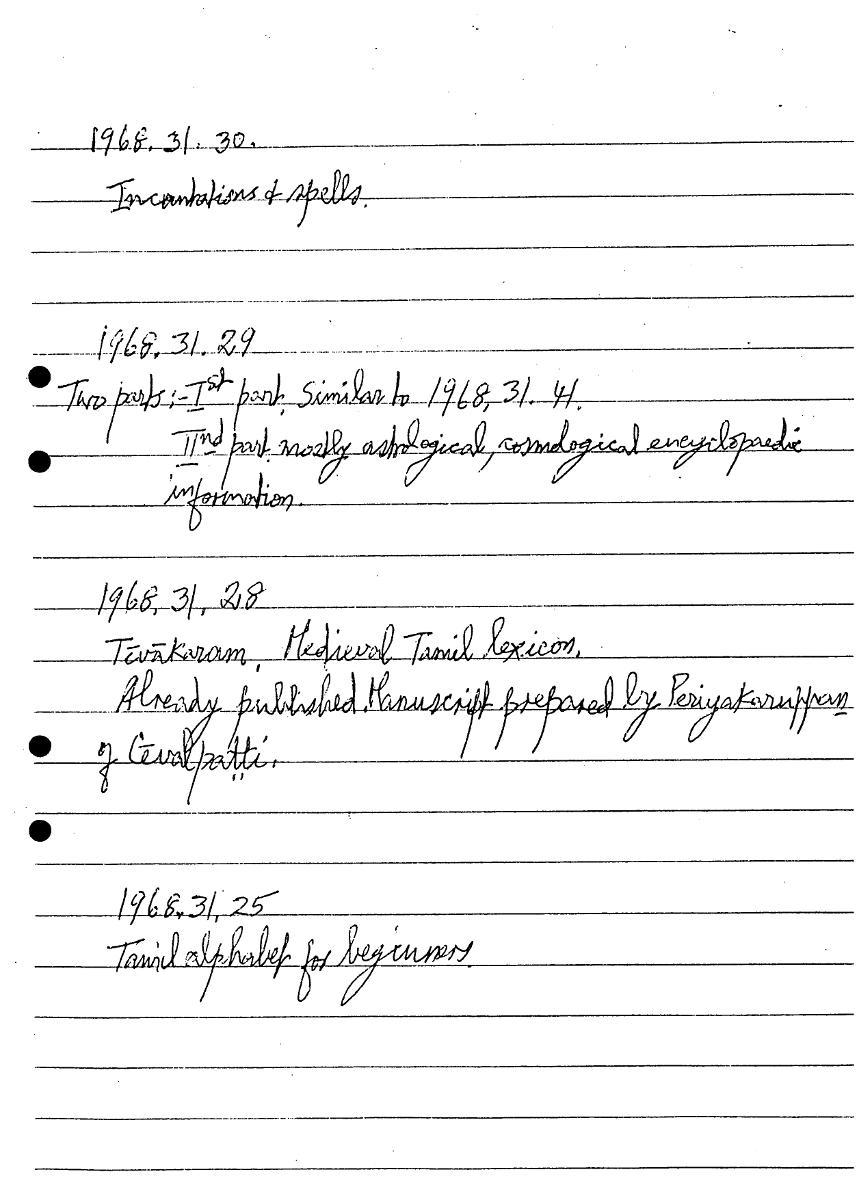 1968. 31. 30.
Incantations & spells.
1968. 31. 29
Two parts:- Ist part Similar to 1968, 31. 41.
IInd part mostly astrological, cosmological encyclopaedic
information.
1968, 31, 28
Tēvākaram. Medieval Tamil lexicon.
Already published. Manuscript prepared by Periyakaruppan
of Cēvalpaṭṭi.
1968. 31, 25
Tamil alphabet for beginners